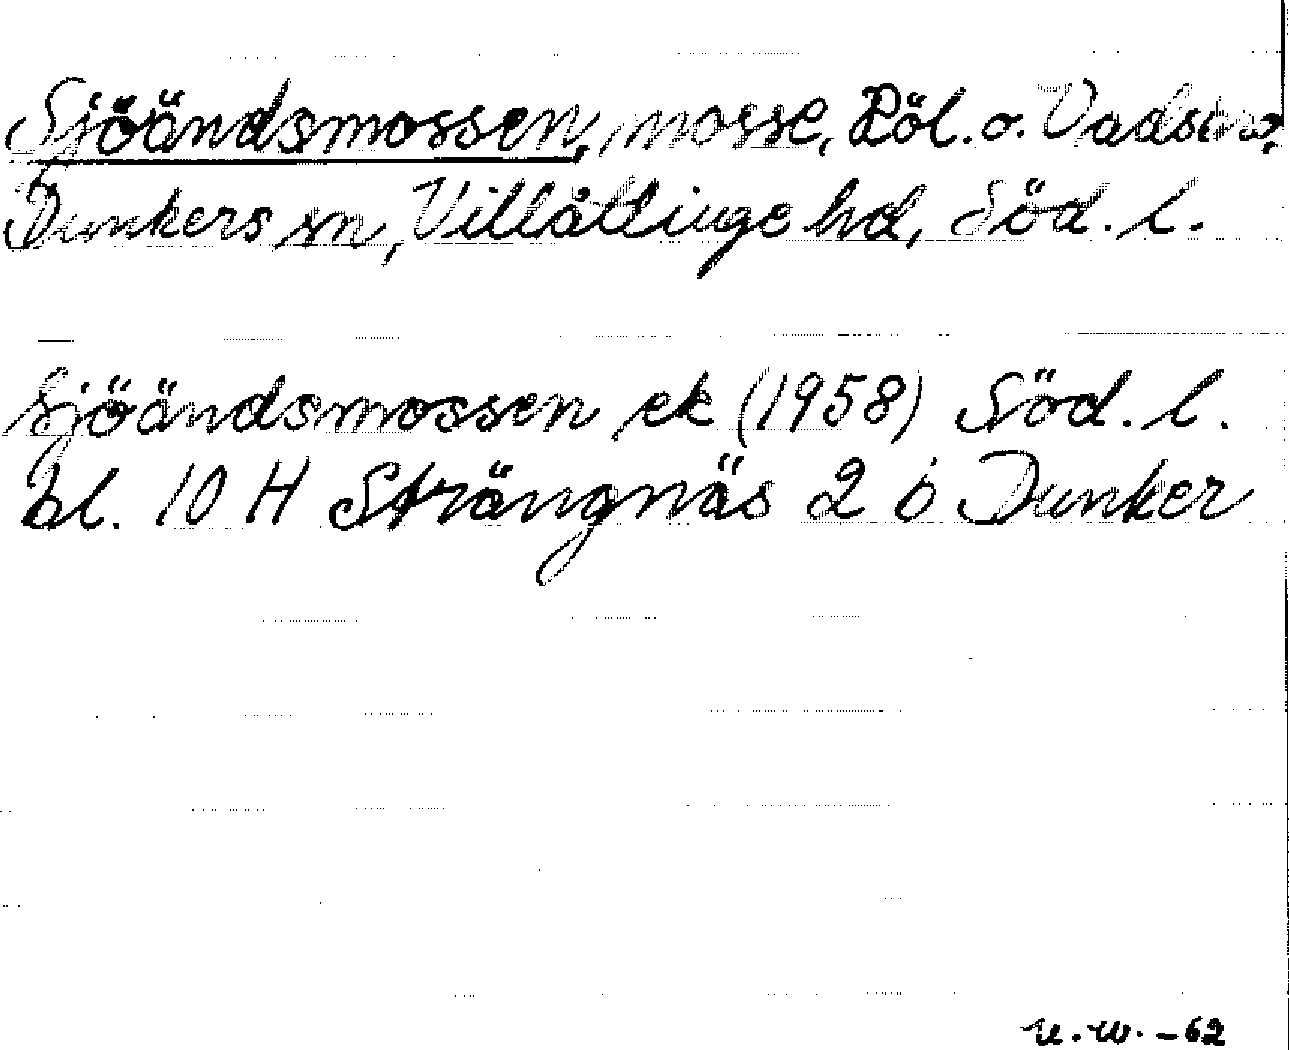 Sjöändsmossen, mosse, Röl. o. Vadsbro,
Dunkers sn, Villåttinge hd, Söd. l.
Sjöändsmossen ek (1958) Söd. l.
bl. 10 H Strängnäs 2 b Dunker
U.W. -62